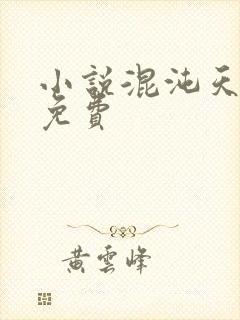 小說混沌天
免費
黃雲峰